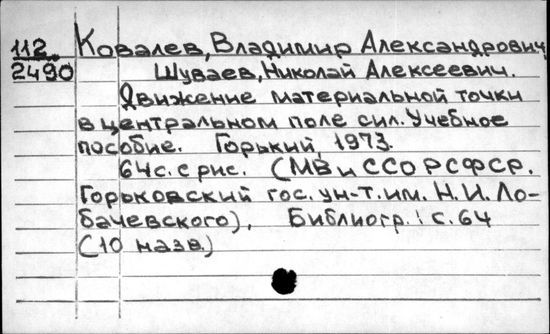 112 Ковалев, Владимир Александрович,
2490 Шуваев, Николай Алексеевич.
Движение материальной точки
в центральном поле сил. Учебное
пособие. Горький, 1973.
64 с. с рис. (МВ и ССО РСФСР.
Горьковский гос. ун-т. им. Н. И. Ло-
бачевского). Библиогр.: с. 64
(10 назв.)